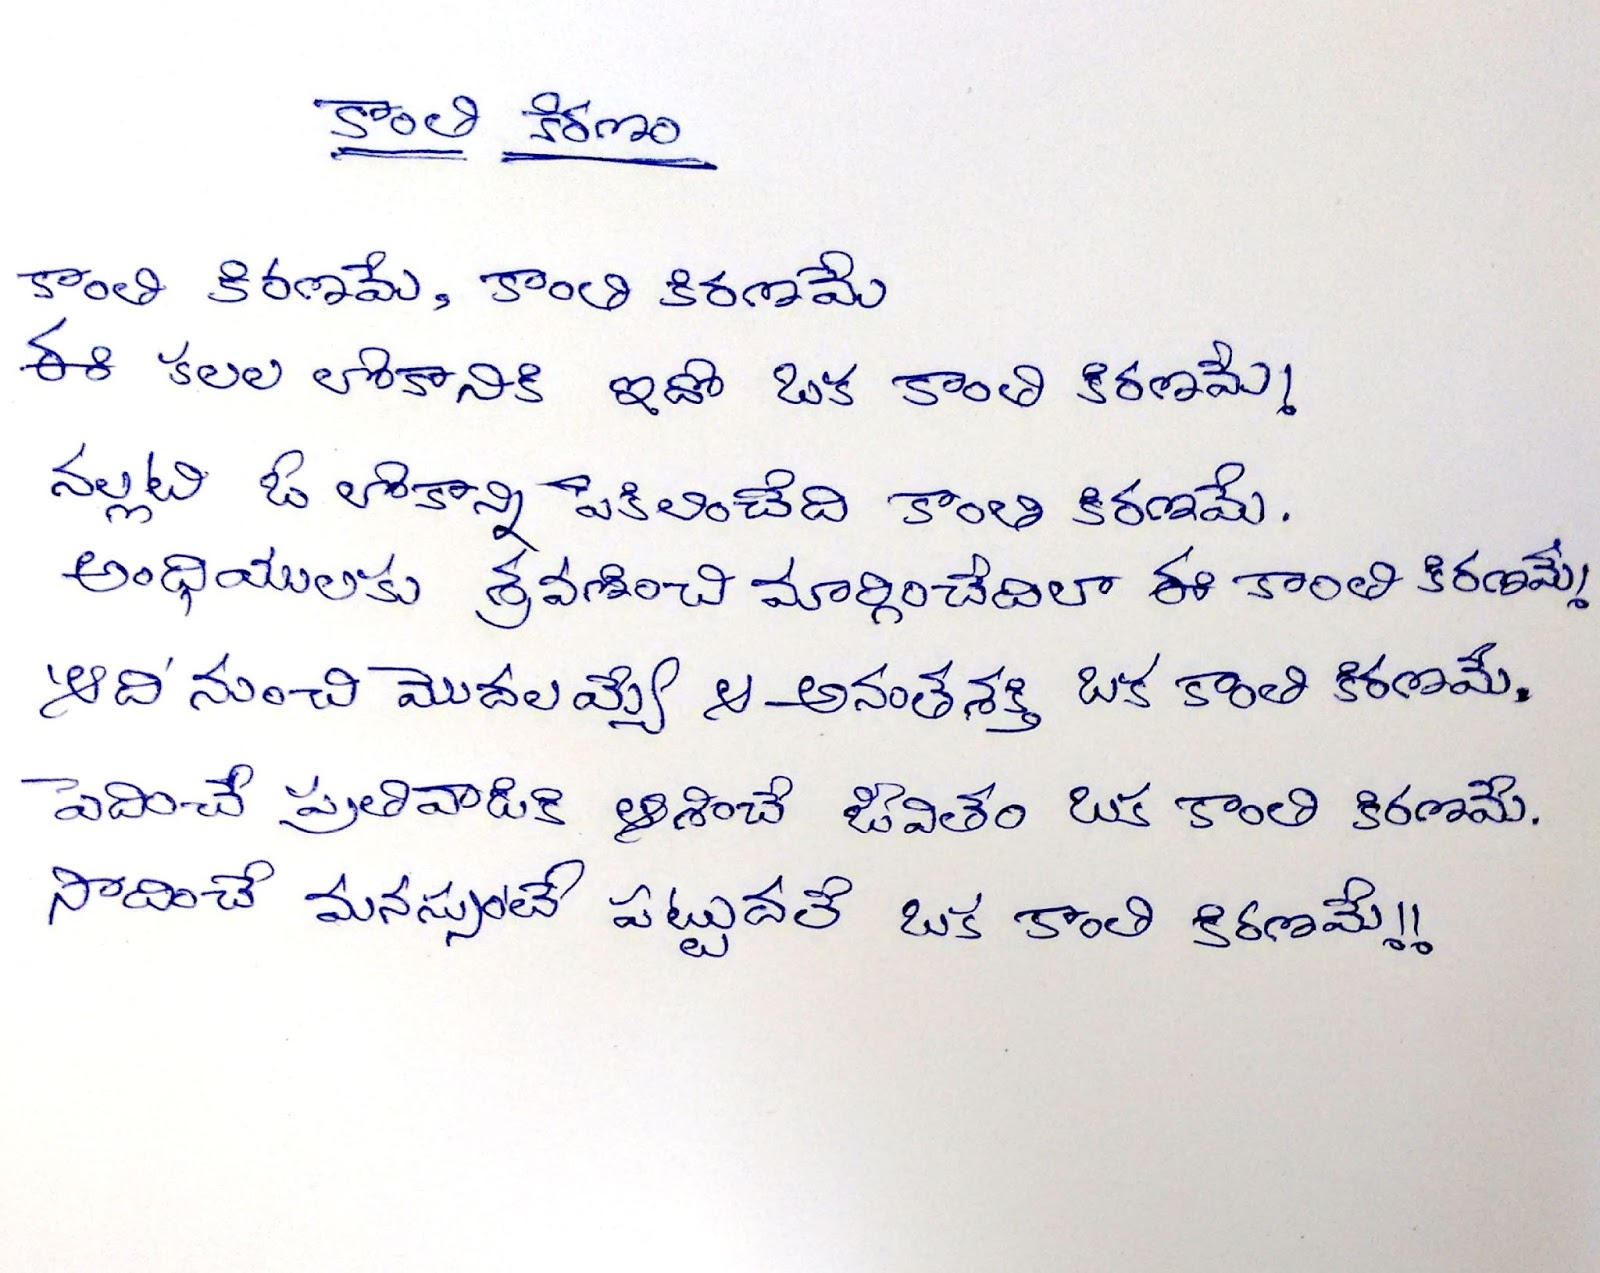 కాంతి కిరణం
కాంతి కిరణమే, కాంతి కిరణమే
ఈ కలల లోకానికి ఇదో ఒక కాంతి కిరణమే!
నల్లటి ఓ లోకాన్ని పెకిలించేది కాంతి కిరణమే.
అంధియులకు శ్రవణించి మార్గించేదిలా ఈ కాంతి కిరణమే!
'ఆది' నుంచి మొదలవ్వే ఆ అనంతశక్తి ఒక కాంతి కిరణమే.
పెదించే ప్రతివాడికి ఆశించే జీవితం ఒక కాంతి కిరణమే.
సాదించే మనస్సుంటే పట్టుదలే ఒక కాంతి కిరణమే!!